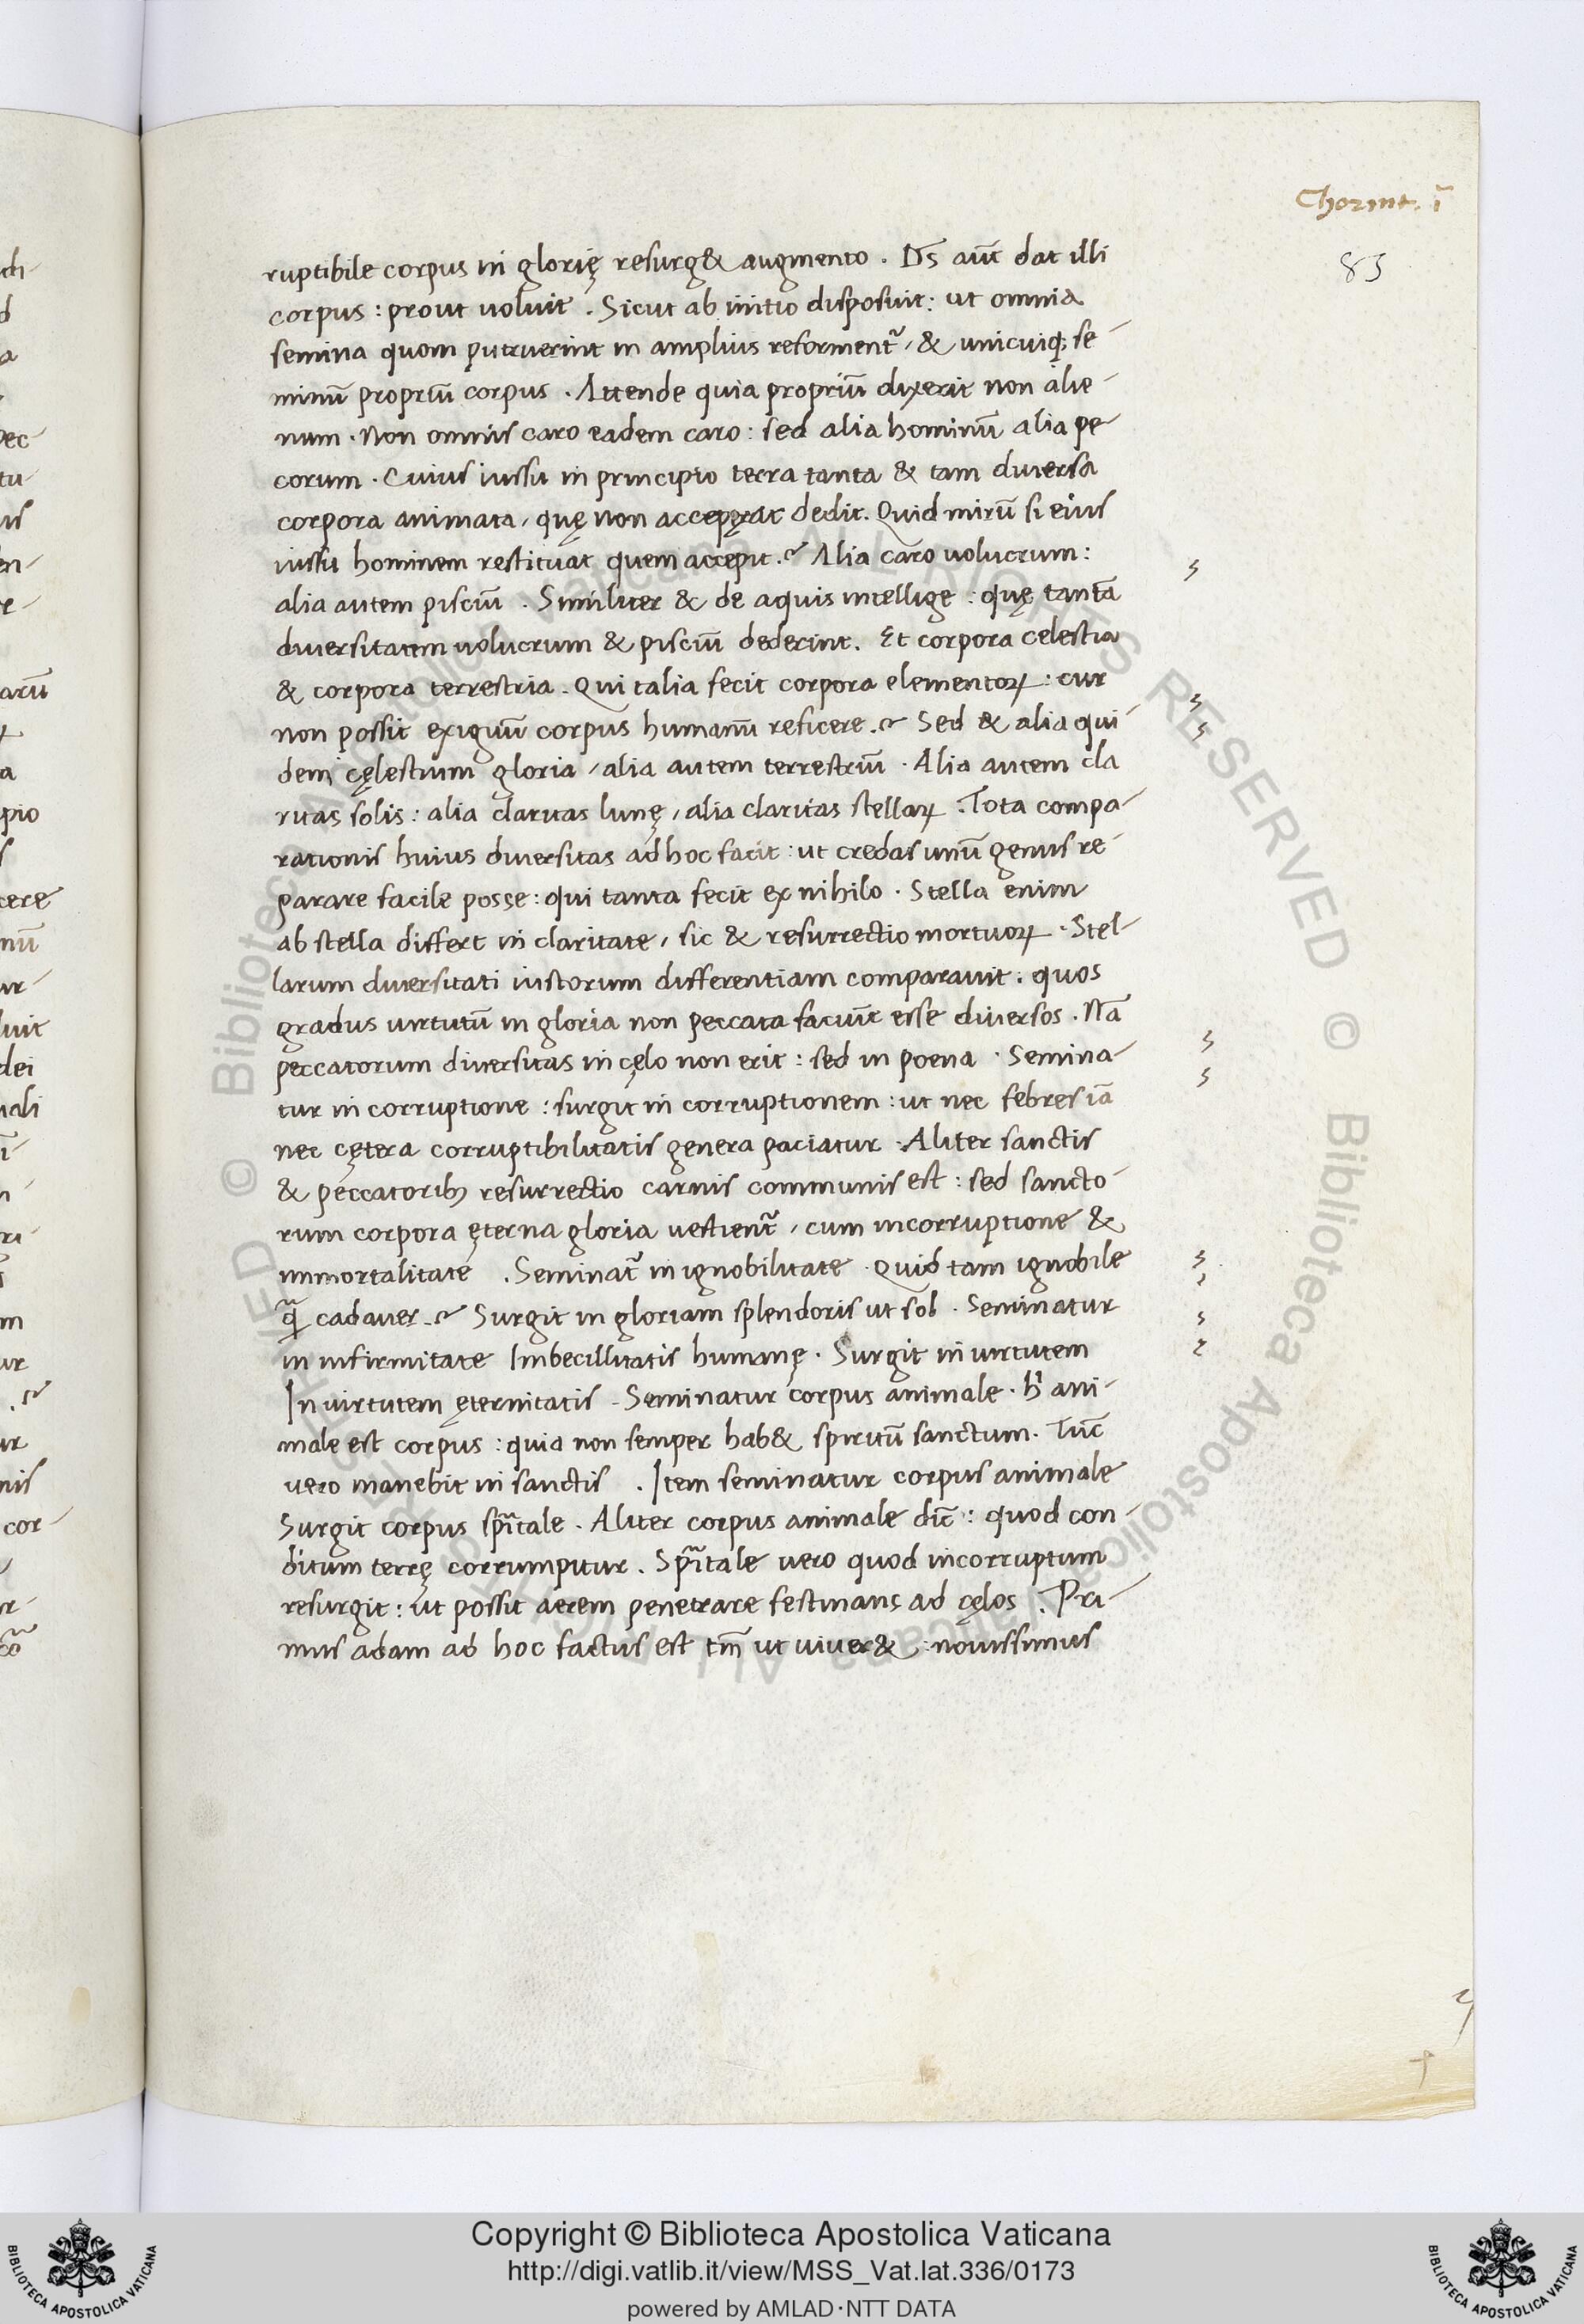 Chorint. ī
83
ruptibile corpus in glorię resurg& augmento . Ds̄ aut̄ dat illi
corpus : prout voluit . Sicut ab initio disposuit : ut omnia
semina quom putruerint in amplius reforment᷑ , & unicuiq; se-
minū propriū corpus . Attende quia propriū dixerit non alie-
num . Non omnis caro eadem caro : sed alia hominū alia pe-
corum . Cuius iussu in principio terra tanta & tam diversa
corpora animata , quę non acceperat dedit . Quid mirū si eius
iussu hominem restituat quem accepit .~ Alia caro volucrum :
alia autem pisciū . Similiter & de aquis intellige : quę tantā
diversitatem volucrum & pisciū dederint . Et corpora celestia
& corpora terrestria . Qui talia fecit corpora elementoꝝ : cur
non possit exiguū corpus humanū reficere .~ Sed & alia qui-
dem cęlestium gloria , alia autem terrestriū . Alia autem cla
ritas solis : alia claritas lunę , alia claritas stellaꝝ . Tota compa-
rationis huius diversitas ad hoc facit : ut credas unū genus re-
parare facile posse : qui tanta fecit ex nihilo . Stella enim
ab stella differt in claritate , sic & resurrectio mortuoꝝ . Stel-
larum diversitati iustorum differentiam comparavit : quos
gradus virtutū in gloria non peccata faciūt esse diversos . Nā
peccatorum diversitas in cęlo non erit : sed in poena . Semina-
tur in corruptione : surgit in corruptionem : ut nec febres iā
nec cętera corruptibilitatis genera paciatur . Aliter sanctis
& peccatorib; resurrectio carnis communis est : sed sancto-
rum corpora ęterna gloria vestient᷑ , cum incorruptione &
immortalitate . Seminat᷑ in ignobilitate . Quid tam ignobile
q̄ cadaver .~ Surgit in gloriam splendoris ut sol . Seminatur
in infirmitate Imbecillitatis humanę . Surgit in virtutem
In virtutem ęternitatis . Seminatur corpus animale . h᷑ ani-
male est corpus : quia non semper hab& spiritū sanctum . Tūc
vero manebit in sanctis . Item seminatur corpus animale
Surgit corpus sp̄itale . Aliter corpus animale dic̄ : quod con-
ditum terrę corrumpitur . Sp̄itale vero quod incorruptum
resurgit : ut possit aerem penetrare festinans ad cęlos . Pri-
mus adam ad hoc factus est tm̄ ut viver& : novissimus
Copyright © Biblioteca Apostolica Vaticana
http://digi.vatlib.it/view/MSS_Vat.lat.336/0173
powered by AMLAD·NTT DATA